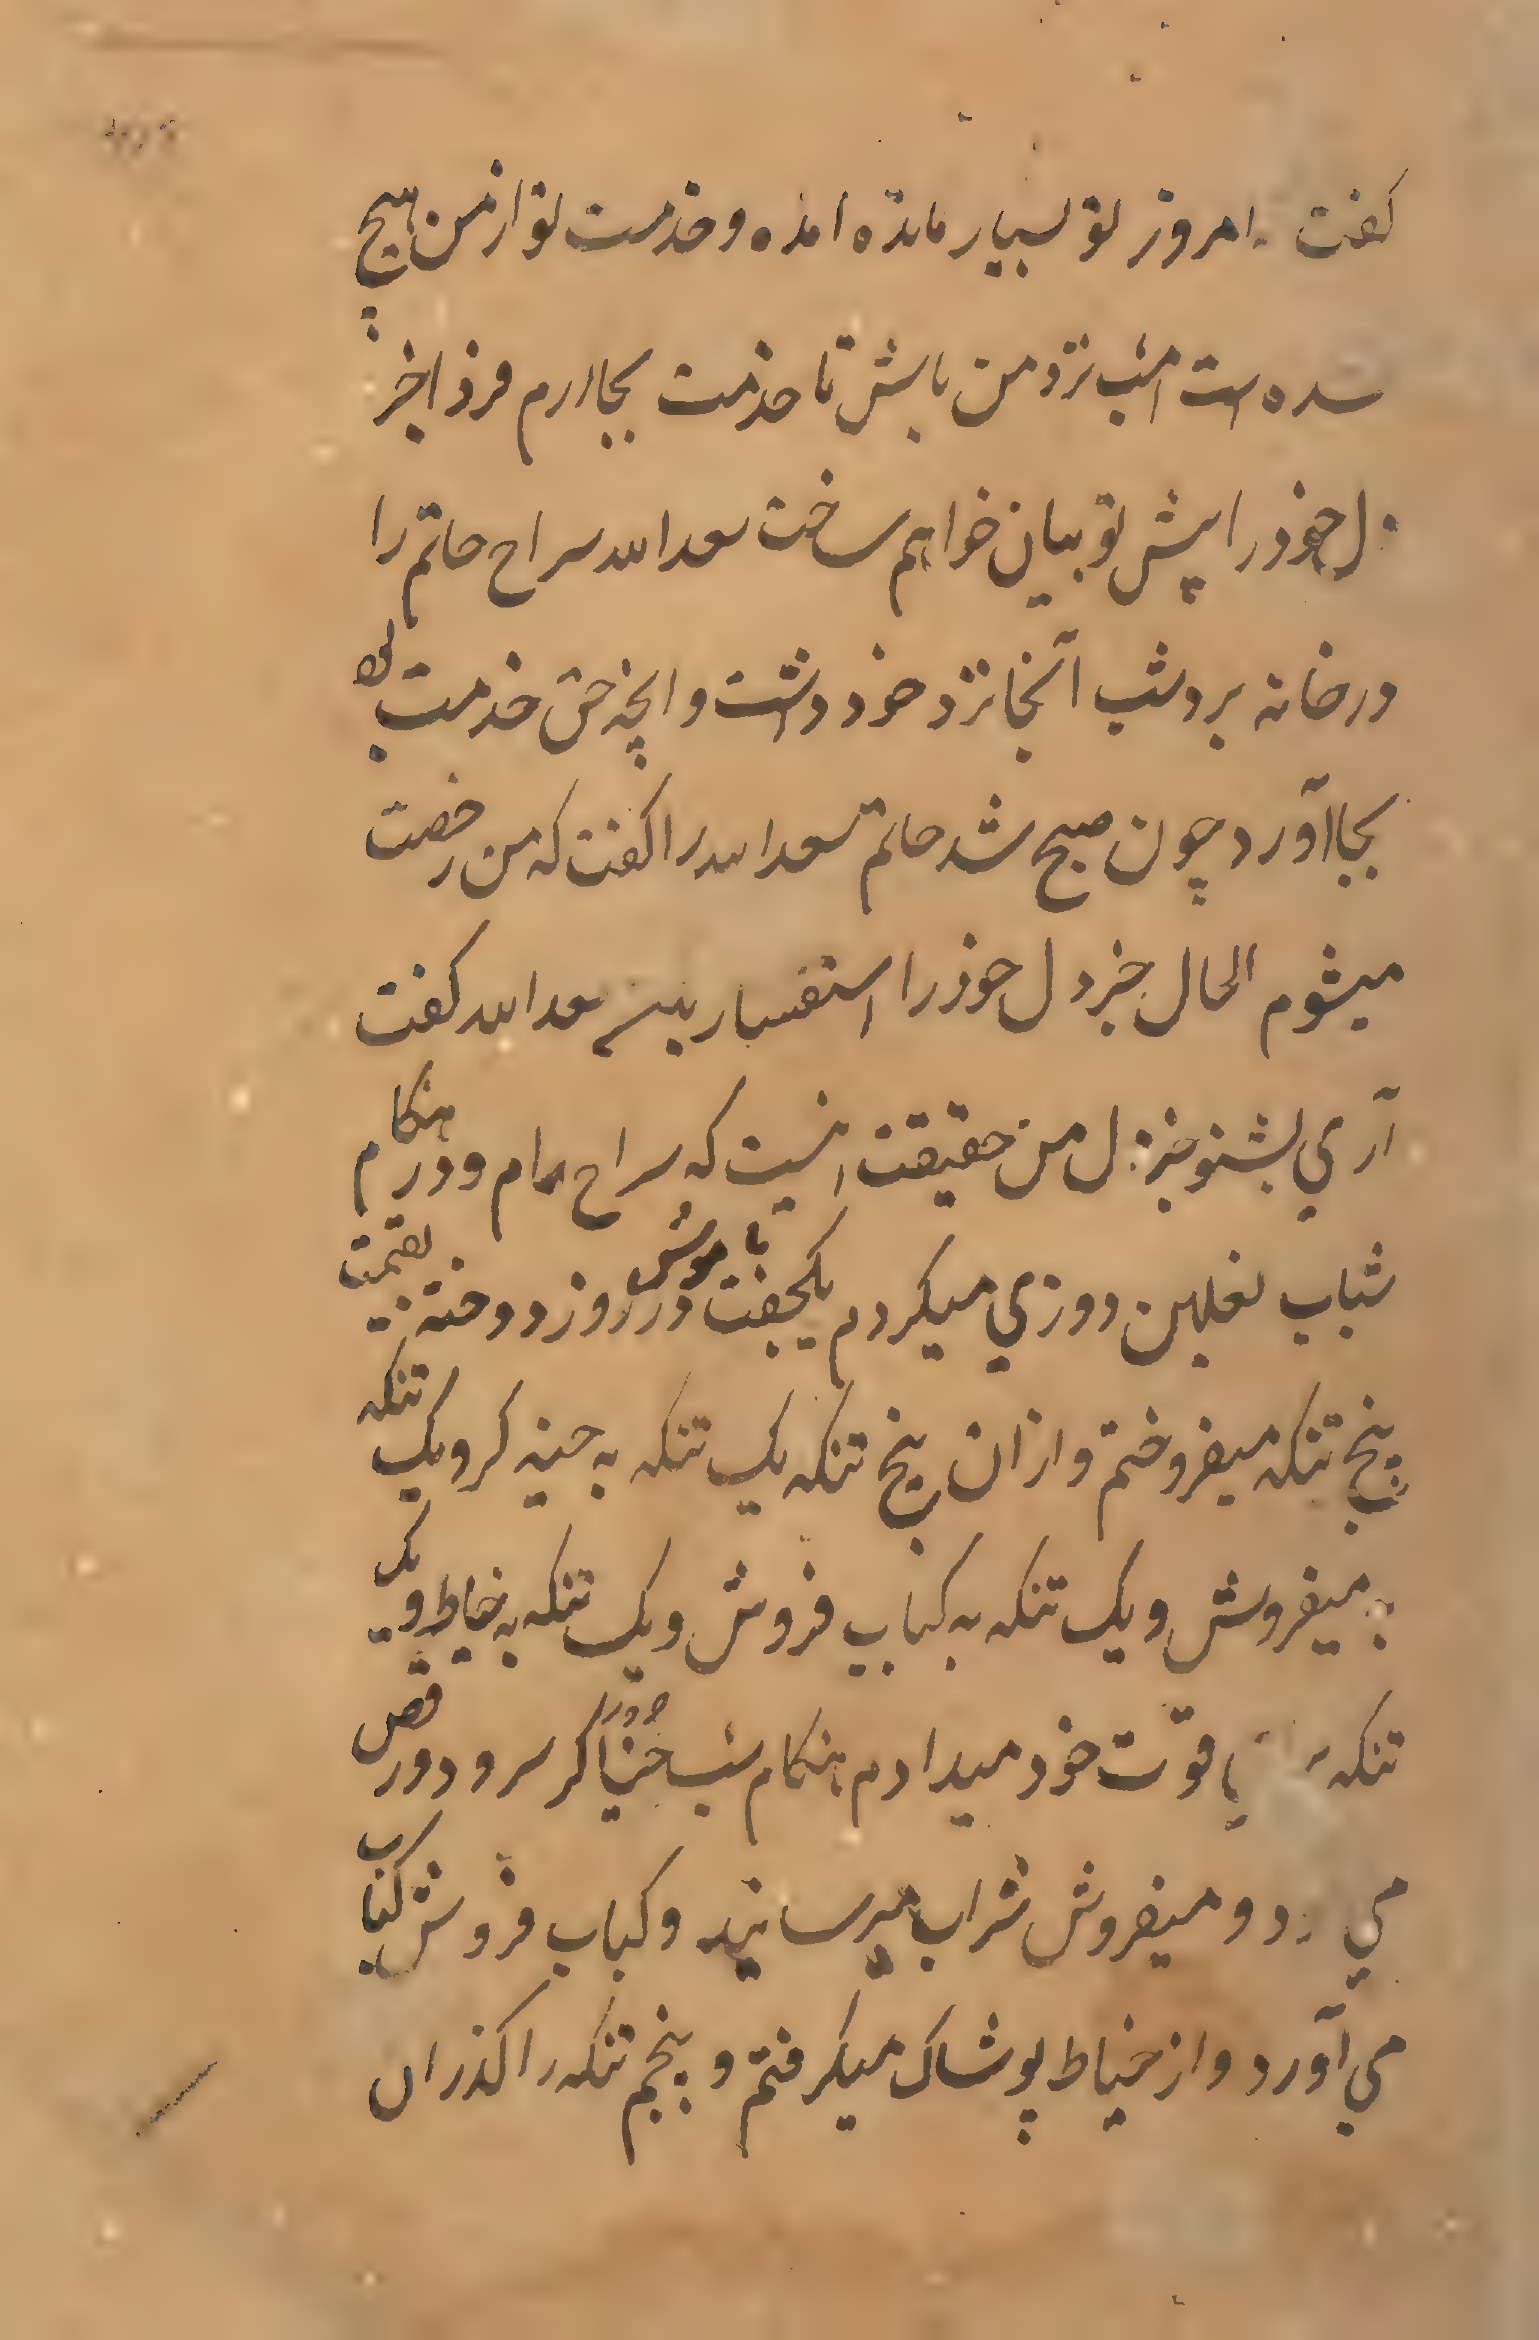 کفت امروز تو بسیار مانده امده و خدمت تو از من هیچ
شده است امشب نزد من باش تا خدمت بجا ارم فردا خبر
دل خود را پیش تو بیان خواهم ساخت سعدالله سراج حاتم را
در خانه برد شب آنجا نزد خود داشت و انچه حق خدمت بود
بجا آورد چون صبح شد حاتم سعدالله را کفت که من رخصت
میشوم الحال خبر دل خود را استفسار سعدالله کفت
آری بشنو خبر دل من حقیقت اینست که سراج ام و در هنکام
شباب نعلین دوزی میکردم یکجفت پاپوش در روز دوخته بقیمت
پنج تنکه میفروختم و ازان پنج تنکه یک تنکه به کر و یک تنکه
به میفروش و یک تنکه به کباب فروش و یک تنکه به خیاط و یک
تنکه قوت خود میدادم هنکام شب کر سرود و رقص
می و میفروش شراب میرسانید و کباب فروش کباب
می آورد و از خیاط پوشاک میکرفتم و پنجم تنکه را کذران